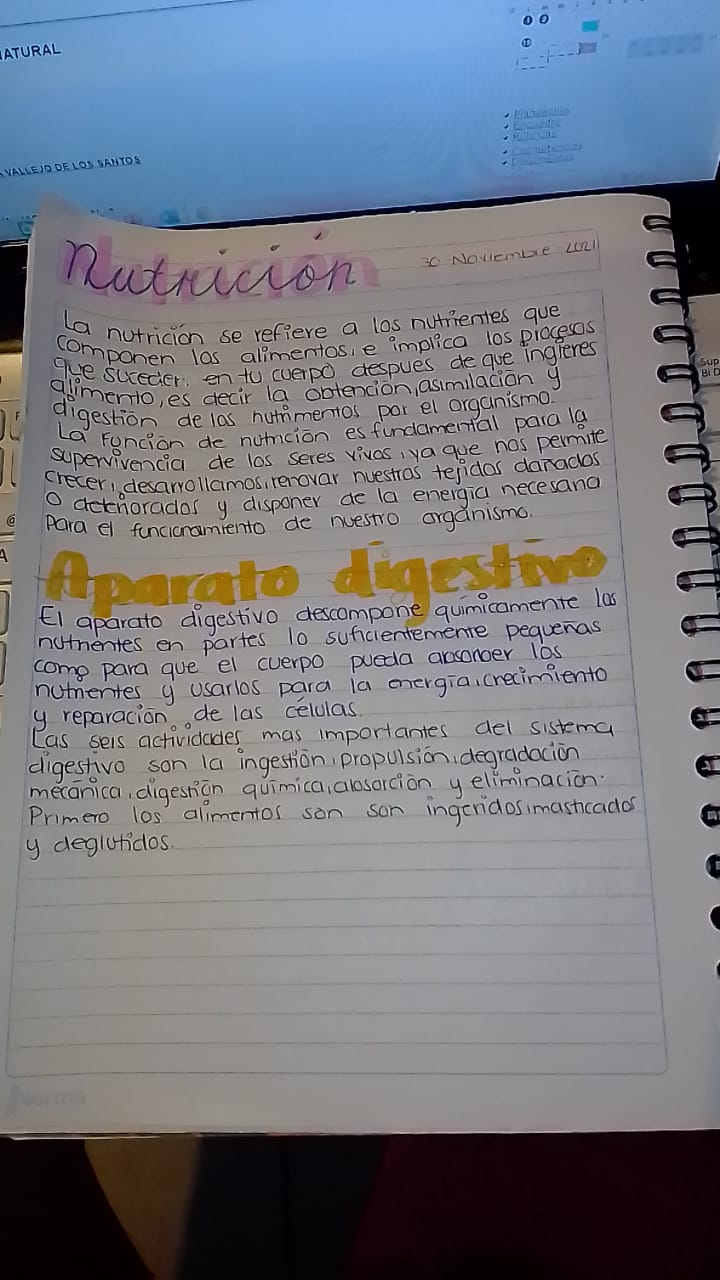 NATURAL
VALLEJO DE LOS SANTOS
Planeación
Encuadre
Rúbricas
Competencias
Documentos
Nutrición
30 Noviembre 2021
La nutrición se refiere a los nutrientes que
componen los alimentos, e implica los procesos
que suceder, en tu cuerpo despues de que ingieres
alimento, es decir la obtención, asimilación y
digestión de los nutrimentos por el organismo.
La función de nutrición es fundamental para la
supervivencia de los seres vivos, ya que nos permite
crecer, desarrollarnos, renovar nuestros tejidos dañados
o deteriorados y disponer de la energía necesaria
para el funcionamiento de nuestro organismo.
Aparato digestivo
El aparato digestivo descompone químicamente los
nutrientes en partes lo suficientemente pequeñas
como para que el cuerpo pueda absorber los
nutrientes y usarlos para la energía, crecimiento
y reparación de las células
Las seis actividades mas importantes del sistema
digestivo son la ingestión, propulsión, degradación
mecánica, digestión química, absorción y eliminación.
Primero los alimentos son son ingeridos, masticados
y deglutidos.
Norma
Sup